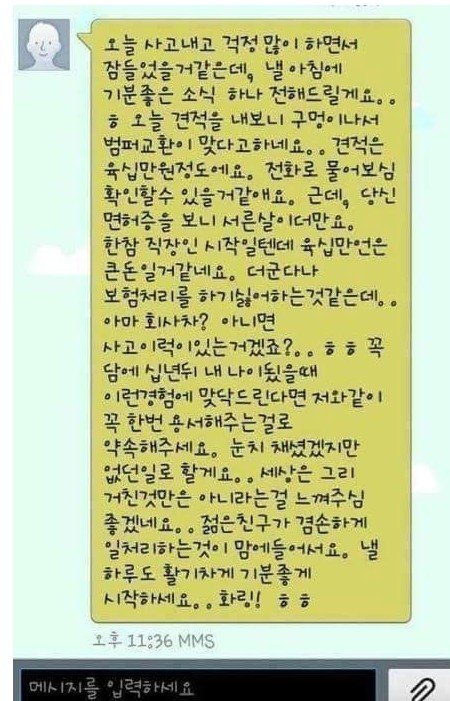 오늘 사고내고 걱정 많이 하면서
잠들었을거같은데, 낼 아침에
기분좋은 소식 하나 전해드릴게요..
ㅎ 오늘 견적을 내보니 구멍이나서
범퍼교환이 맞다고하네요.. 견적은
육십만원정도에요. 전화로 물어보심
확인할수 있을거같애요. 근데, 당신
면허증을 보니 서른살이더만요.
한참 직장인 시작일텐데 육십만언은
큰돈일거같네요. 더군다나
보험처리를 하기싫어하는것같은데..
아마 회사차? 아니면
사고이력이있는거겠죠?.. ㅎㅎ 꼭
담에 십년뒤 내 나이됬을때
이런경험에 맞닥드린다면 저와같이
꼭 한번 용서해주는걸로
약속해주세요. 눈치 채셨겠지만
없던일로 할게요.. 세상은 그리
거친것만은 아니라는걸 느껴주심
좋겠네요.. 젊은친구가 겸손하게
일처리하는것이 맘에들어서요. 낼
하루도 활기차게 기분좋게
시작하세요.. 화링! ㅎㅎ
오후 11:36 MMS
메시지를 입력하세요